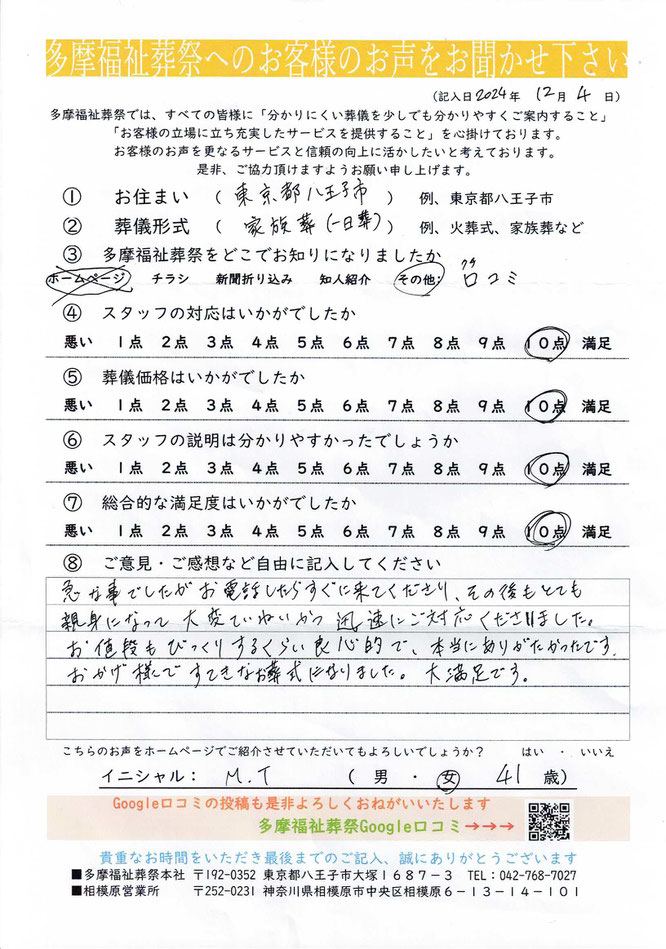 多摩福祉葬祭へのお客様のお声をお聞かせ下さい
（記入日2024年 12月 4 日）
多摩福祉葬祭では、すべての皆様に「分かりにくい葬儀を少しでも分かりやすくご案内すること」
「お客様の立場に立ち充実したサービスを提供すること」を心掛けております。
お客様のお声を更なるサービスと信頼の向上に活かしたいと考えております。
是非、ご協力頂けますようお願い申し上げます。
① お住まい （ 東京都八王子市 ） 例、東京都八王子市
② 葬儀形式 （ 家族葬（一日葬） ） 例、火葬式、家族葬など
③ 多摩福祉葬祭をどこでお知りになりましたか
ホームページ チラシ 新聞折り込み 知人紹介 その他: 口コミ
④ スタッフの対応はいかがでしたか
悪い 1点 2点 3点 4点 5点 6点 7点 8点 9点 10点 満足
⑤ 葬儀価格はいかがでしたか
悪い 1点 2点 3点 4点 5点 6点 7点 8点 9点 10点 満足
⑥ スタッフの説明は分かりやすかったでしょうか
悪い 1点 2点 3点 4点 5点 6点 7点 8点 9点 10点 満足
⑦ 総合的な満足度はいかがでしたか
悪い 1点 2点 3点 4点 5点 6点 7点 8点 9点 10点 満足
⑧ ご意見・ご感想など自由に記入してください
急な事でしたがお電話したらすぐに来てくださり、その後もとても
親身になって大変ていねいかつ迅速にご対応くださいました。
お値段もびっくりするくらい良心的で、本当にありがたかったです.
おかげ様ですてきなお葬式になりました。大満足です。
こちらのお声をホームページでご紹介させていただいてもよろしいでしょうか？ はい ・ いいえ
イニシャル： M.T （ 男 ・ 女 41 歳）
Google口コミの投稿も是非よろしくおねがいいたします
多摩福祉葬祭Google口コミ→→→
貴重なお時間をいただき最後までのご記入、誠にありがとうございます
■多摩福祉葬祭本社 〒192-0352 東京都八王子市大塚1687－3 TEL：042-768-7027
■相模原営業所 〒252-0231 神奈川県相模原市中央区相模原6－13－14－101